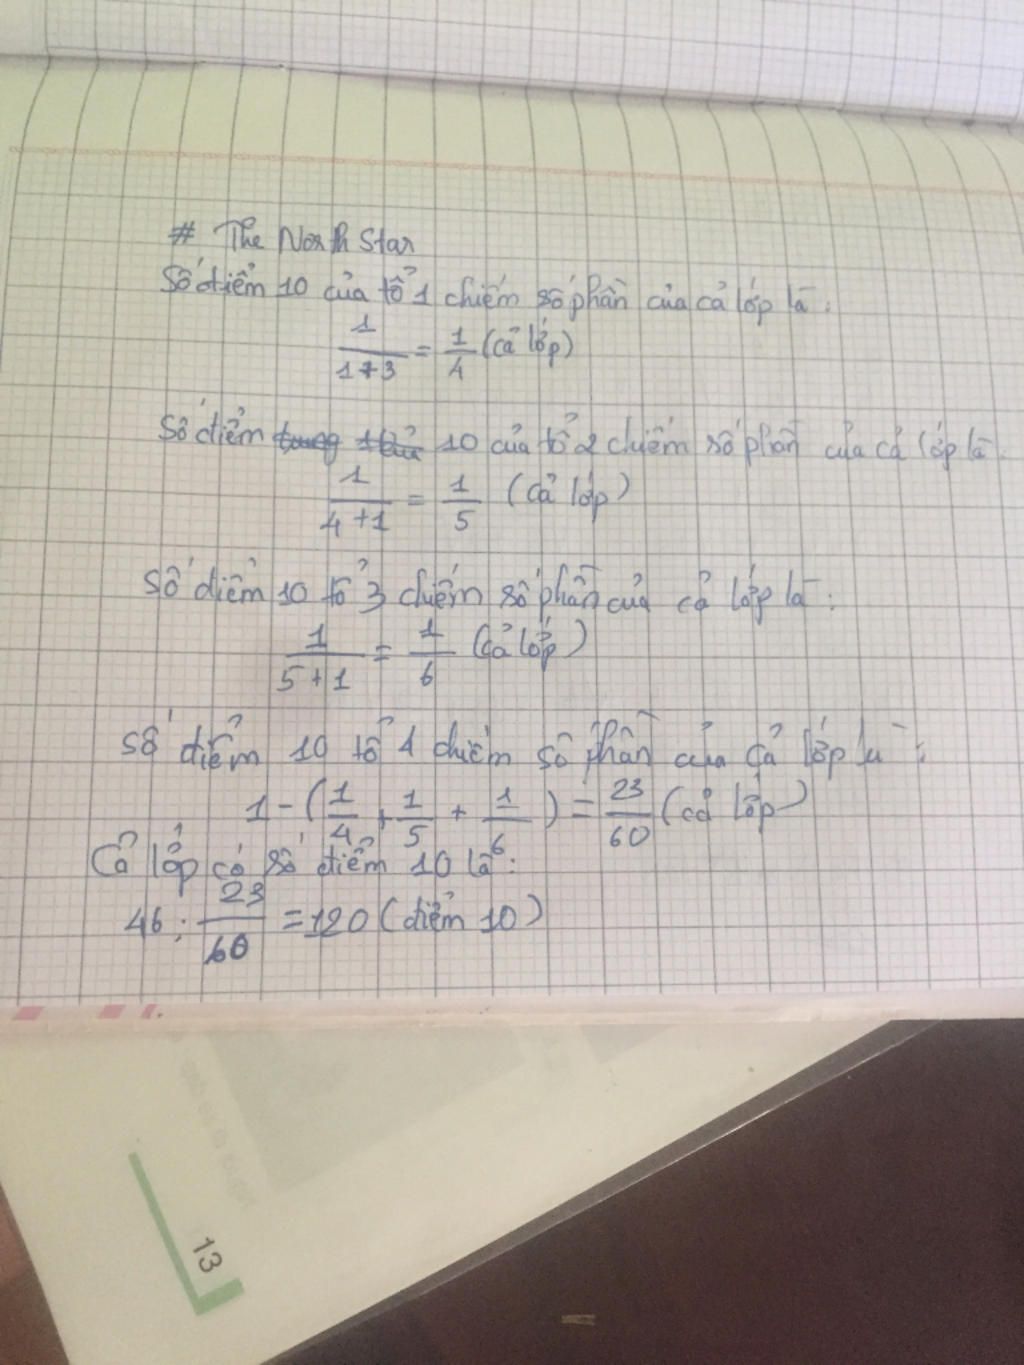 # The North Star
Số điểm 10 của tổ 1 chiếm số phần của cả lớp là:
1/(1+3) = 1/4 (cả lớp)
Số điểm 10 của tổ 2 chiếm số phần của cả lớp là
1/(4+1) = 1/5 (cả lớp)
Số điểm 10 tổ 3 chiếm số phần của cả lớp là:
1/(5+1) = 1/6 (cả lớp)
Số điểm 10 tổ 4 chiếm số phần của cả lớp là:
1-(1/4+1/5+1/6) = 23/60 (cả lớp)
Cả lớp có số điểm 10 là:
46 : 23/60 = 120 (điểm 10)
13